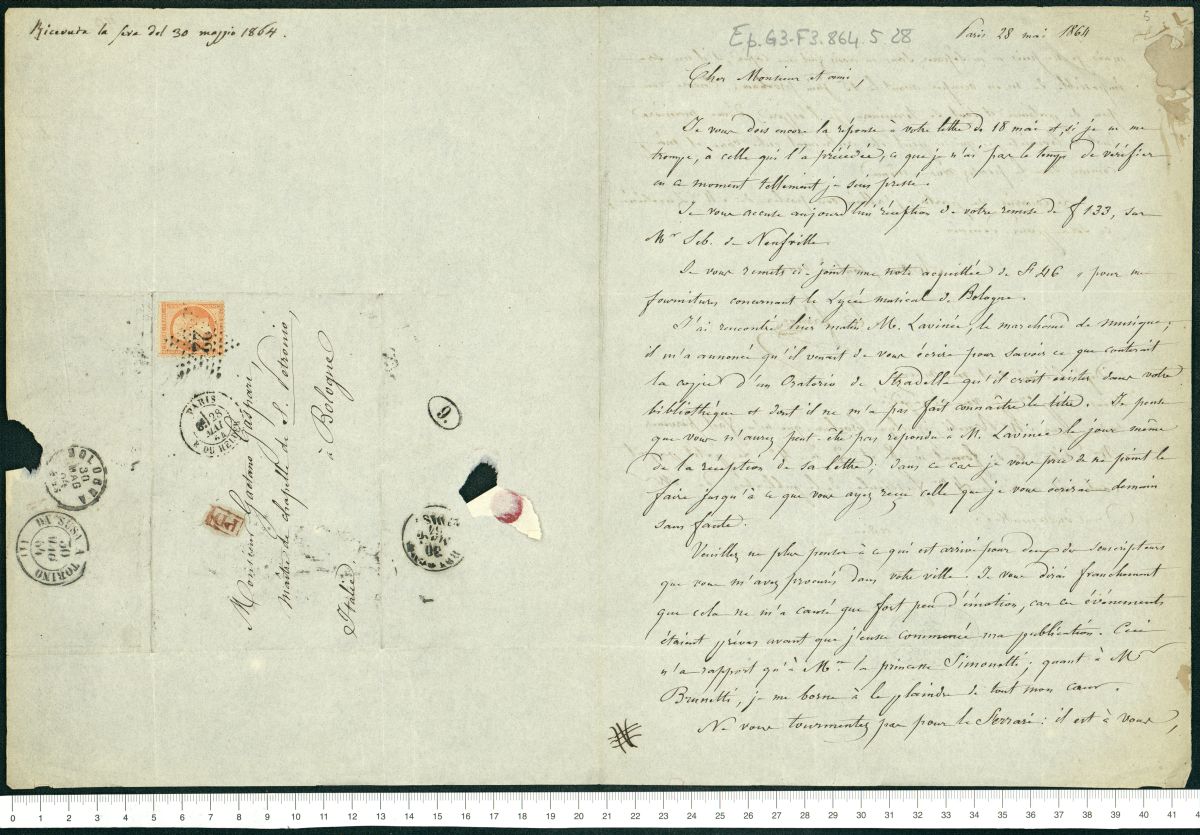 Ricevuta la sera del 30 maggio 1864.
22
PARIS
28
MAI
64
R. DU HELDER
BOLOGNA
30
MAG
64
DA SUSA A TORINO
30
MAG
64
(1)
PD
9.
30
Monsieur Gaetano Gaspari
maître de chapelle de S. Petronio,
à Bologne
Italie.
Ep. G3-F3. 864. 5. 28
5
Paris 28 mai 1864
Cher Monsieur et ami,
Je vous dois encore la réponse à votre lettre du 18 mai et, si je ne me
trompe, à celle qui l'a précédée, ce que je n'ai pas le temps de vérifier
en ce moment tellement je suis pressé.
Je vous accuse aujourd'hui réception de votre remise de f 133, sur
Mr Seb. de Neufville.
Je vous remets ci-joint une note acquittée de Fr 46 " pour me
fournitures concernant le Lycée musical de Bologne.
J'ai rencontré hier matin M. Lavinée, le marchand de musique;
il m'a annoncé qu'il venait de vous écrire pour savoir ce que coûterait
la copie d'un Oratorio de Stradella qu'il croit exister dans votre
bibliothèque et dont il ne m'a pas fait connaître le titre. Je pense
que vous n'aurez peut-être pas répondu à M. Lavinée le jour même
de la réception de sa lettre; dans ce cas je vous prie de ne point le
faire jusqu'à ce que vous ayez reçu celle que je vous écrirai demain
sans faute.
Veuillez ne plus penser à ce qui est arrivé pour deux des souscripteurs
que vous m'avez procurés dans votre ville. Je vous dirai franchement
que cela ne m'a causé que fort peu d'émotion, car ces événements
étaient prévus avant que j'eusse commencé ma publication. Ceci
n'a rapport qu'à Mme la princesse Simonetti; quant à Mr
Brunetti, je me borne à le plaindre de tout mon cœur.
Ne vous tourmentez pas pour le Serrare: il est à vous,
0 1 2 3 4 5 6 7 8 9 10 11 12 13 14 15 16 17 18 19 20 21 22 23 24 25 26 27 28 29 30 31 32 33 34 35 36 37 38 39 40 41